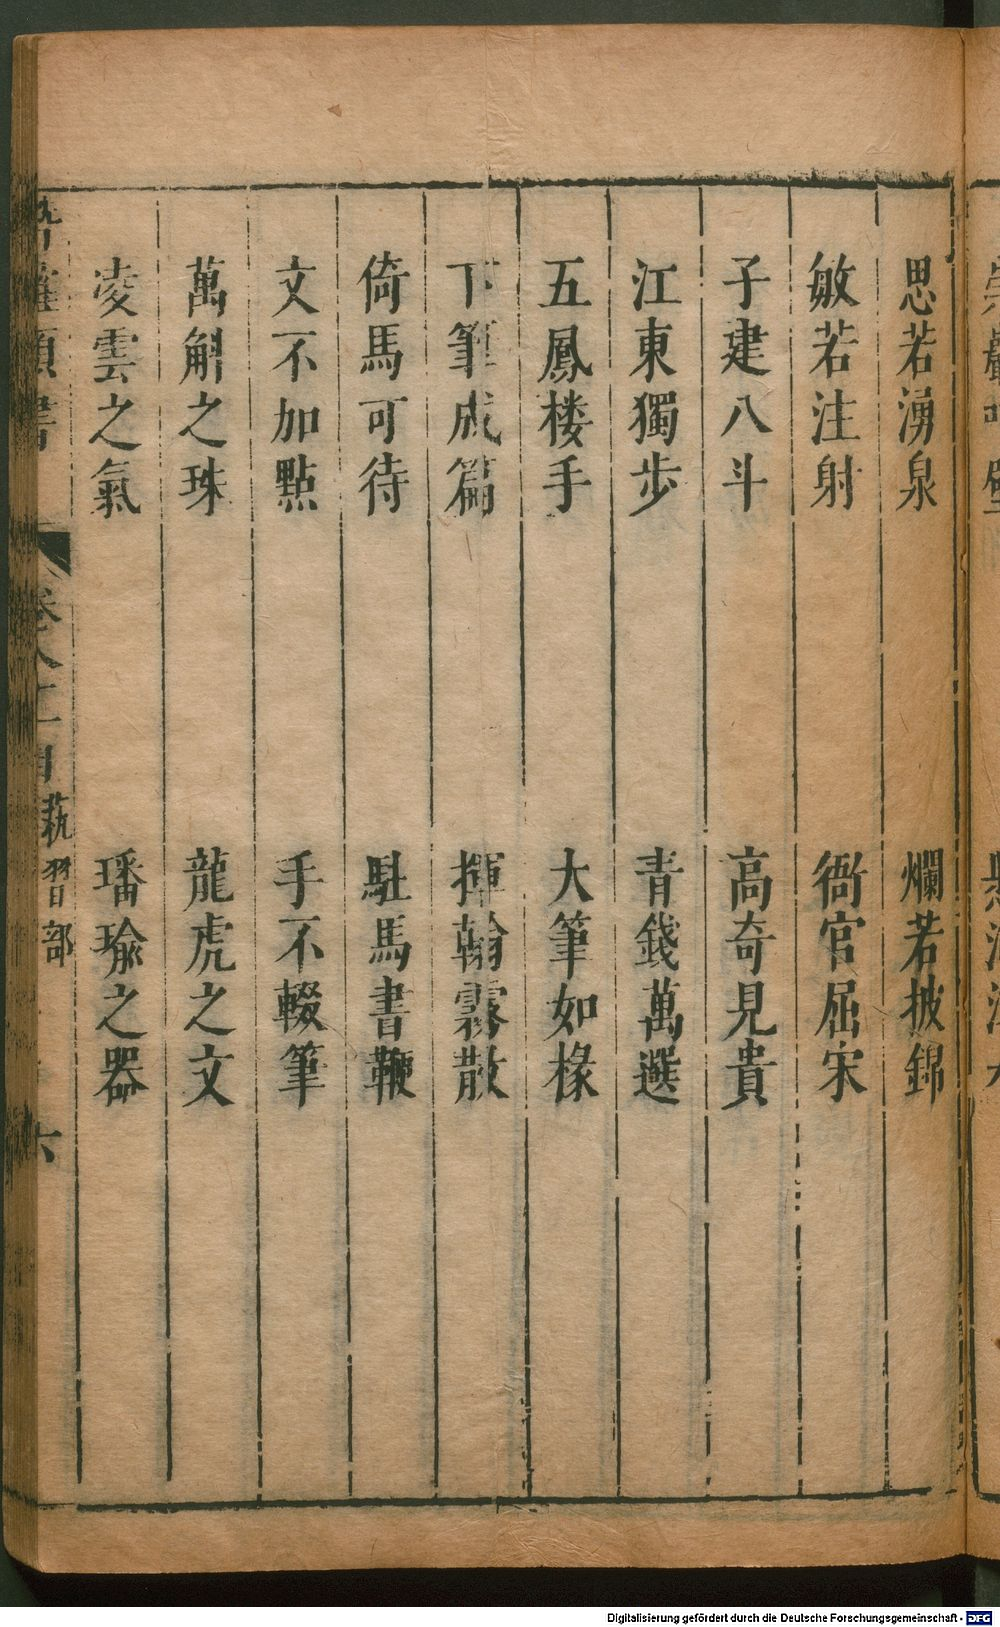 思若湧泉 爛若披錦
敏若注射 衙官屈宋
子建八斗 高奇見貴
江東獨步 青錢萬選
五鳳楼手 大筆如椽
下筆成篇 揮翰霧散
倚馬可待 駐馬書鞭
文不加點 手不輟筆
萬斛之珠 龍虎之文
凌雲之氣 璠瑜之器
類書 卷 目 藝習部 六
Digitalisierung gefördert durch die Deutsche Forschungsgemeinschaft - DFG